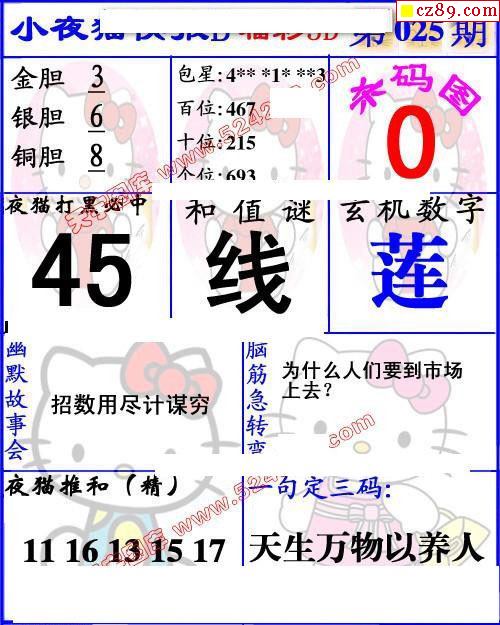 cz89.com
小夜猫快报D 福彩3D 第025期
金胆 3
银胆 6
铜胆 8
包星:4** *1* **3
百位:467
十位:215
个位:693
杀码图
0
夜猫打黑必中
45
和值谜
线
玄机数字
莲
幽默故事会
招数用尽计谋穷
脑筋急转弯
为什么人们要到市场
上去?
夜猫推和(精)
11 16 13 15 17
一句定三码:
天生万物以养人